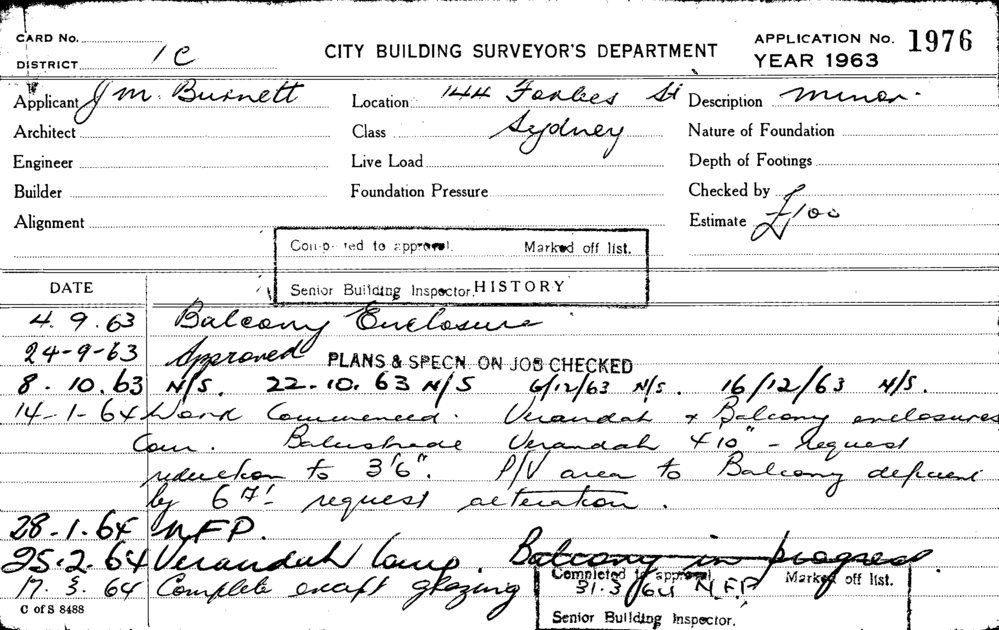 CARD No.
DISTRICT 1C
CITY BUILDING SURVEYOR'S DEPARTMENT
APPLICATION No. 1976
YEAR 1963
Applicant J M. Burnett
Location 144 Forbes St
Description Minor.
Architect
Class Sydney
Nature of Foundation
Engineer
Live Load
Depth of Footings
Builder
Foundation Pressure
Checked by
Alignment
Estimate £100
Completed to approval. Marked off list.
Senior Building Inspector.
DATE HISTORY
4.9.63 Balcony Enclosure
24-9-63 Approved PLANS & SPECN. ON JOB CHECKED
8.10.63 N/S. 22.10.63 N/S 6/12/63 N/S. 16/12/63 N/S.
14-1-64 Work Commenced. Verandah & Balcony enclosures
Com. Balustrade Verandah 4'10" - request
reduction to 3'6". P/V area to Balcony deficient
by 6 request alteration.
28.1.64 NFP.
25.2.64 Verandah Comp. Balcony in progress.
17.3.64 Complete except glazing
Completed to approval. Marked off list.
31.3/64 N.F.P
Senior Building Inspector.
C of S 8488